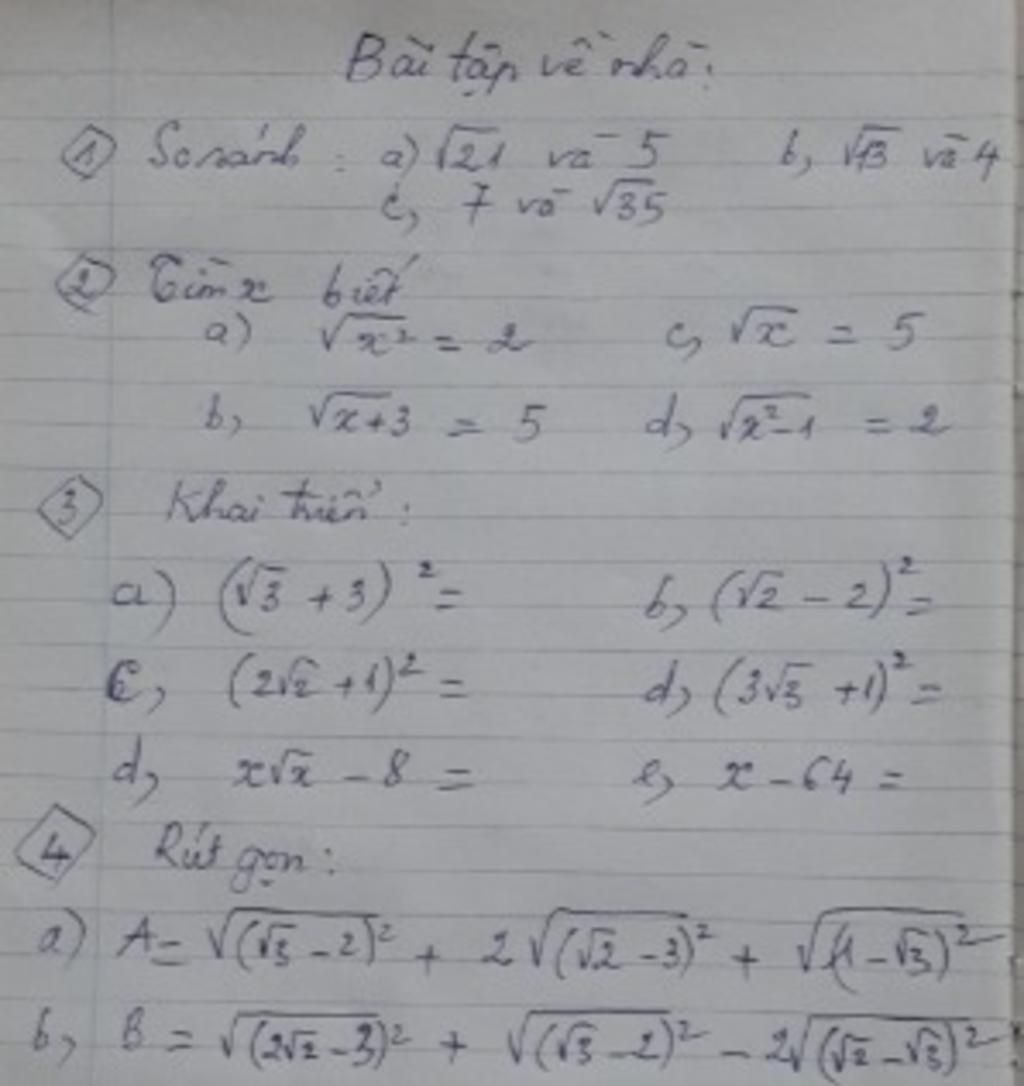 Bài tập về nhà:
① So sánh: a) √21 và 5 b, √13 và 4
c, 7 và √35
② Tìm x biết
a) √x² = 2 c, √x = 5
b, √x+3 = 5 d, √x²-1 = 2
③ Khai triển:
a) (√3 + 3)² = b, (√2 - 2)² =
c, (2√2 + 1)² = d, (3√3 + 1)² =
d, x√x - 8 = e, x - 64 =
④ Rút gọn:
a) A = √(√3 - 2)² + 2√(√2 - 3)² + √(1 - √3)²
b, B = √(2√2 - 3)² + √(√3 - 2)² - 2√(√2 - √3)²